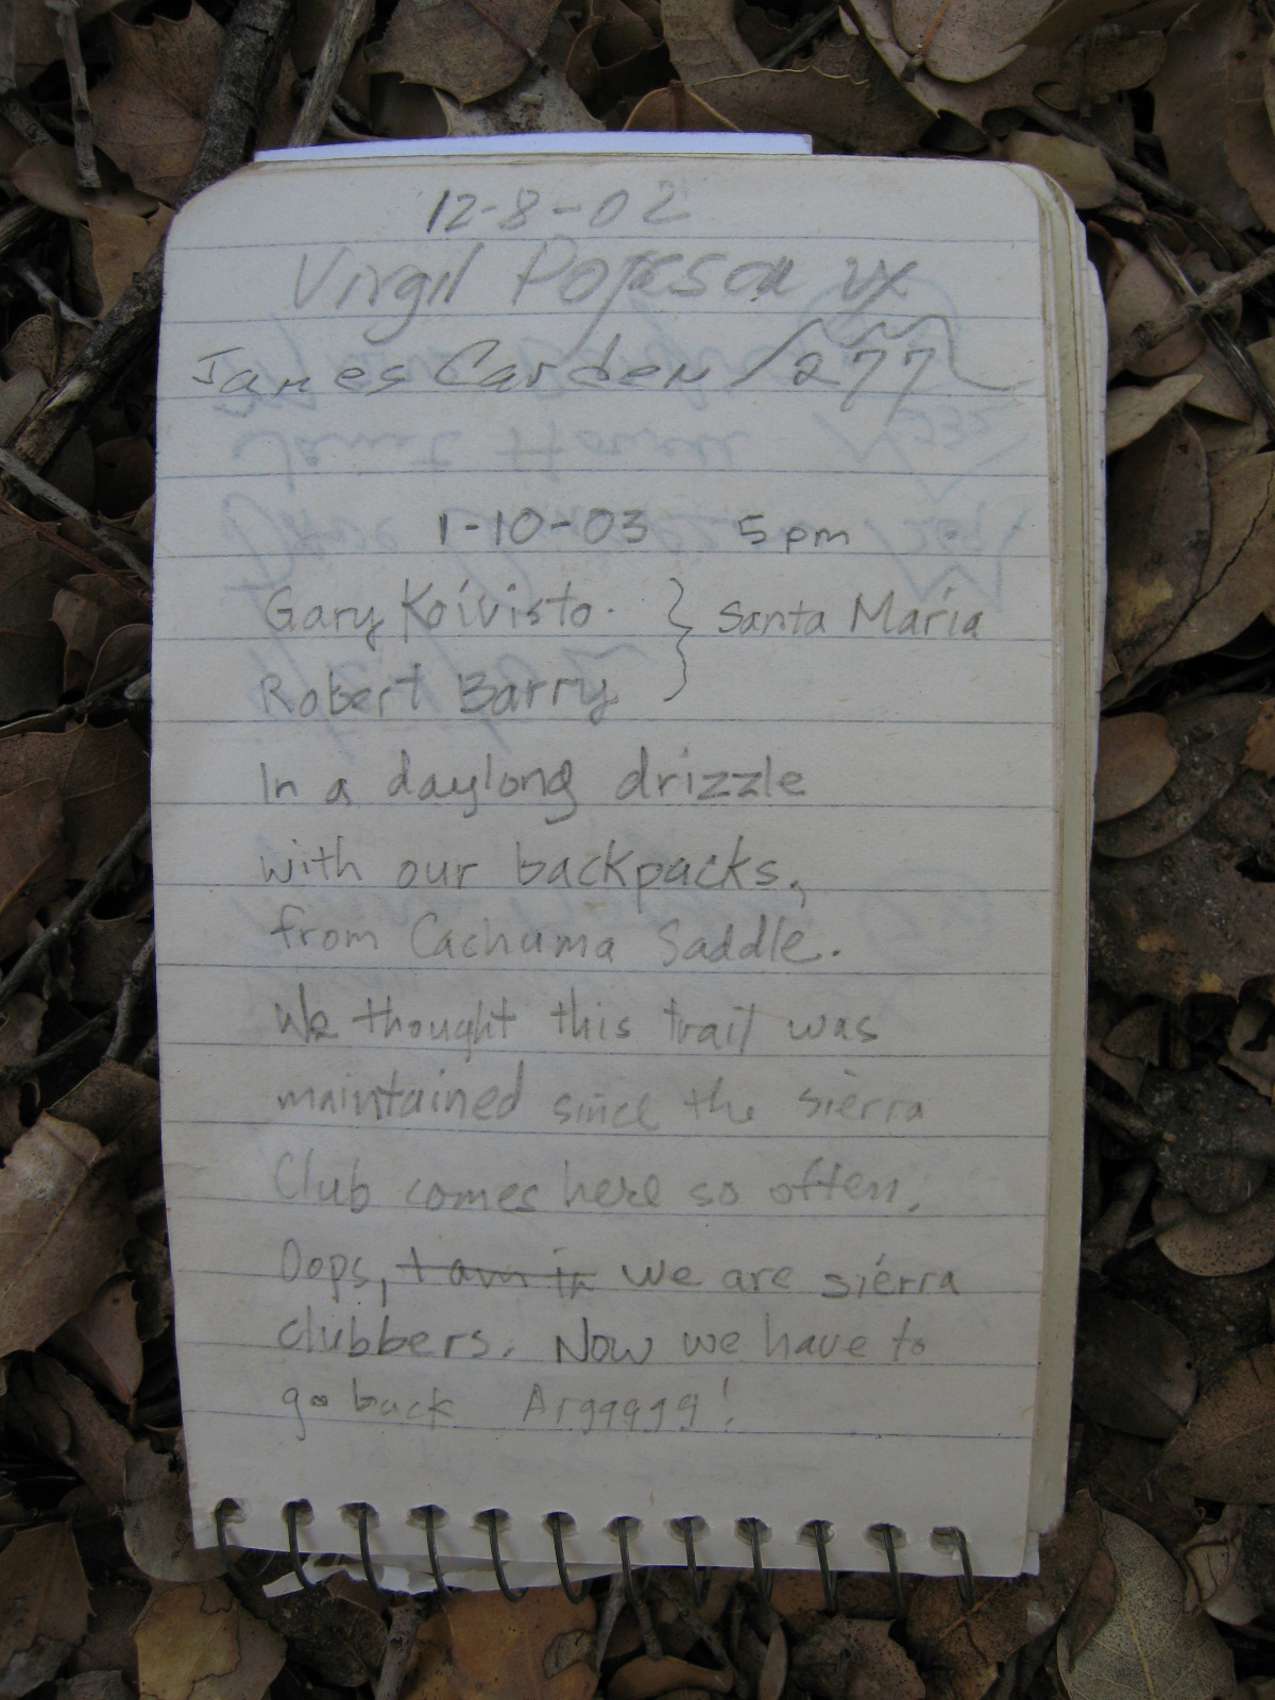 12-8-02
Virgil
James Carden 277
1-10-03 5pm
Gary Koivisto. } Santa Maria
Robert Barry
In a daylong drizzle
with our backpacks,
from Cachuma Saddle.
We thought this trail was
maintained since the sierra
Club comes here so often.
Oops, I am in we are sierra
clubbers. Now we have to
go back Arggggg!